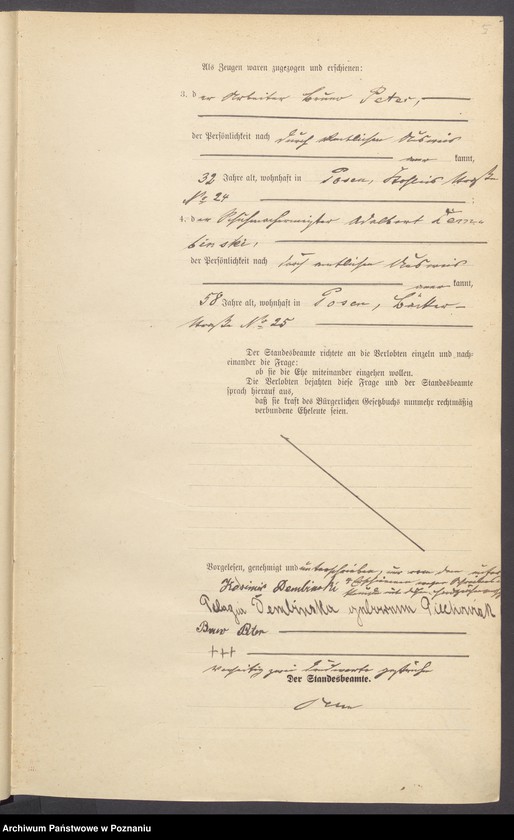 Als Zeugen waren zugezogen und erschienen:
3. der Arbeiter Bruno Peter,
der Persönlichkeit nach durch amtlichen Ausweis
kannt,
32 Jahre alt, wohnhaft in Posen, Straße
No 24
4. der Schuhmachermeister Adalbert Dem-
binski,
der Persönlichkeit nach durch amtlichen Ausweis
kannt,
58 Jahre alt, wohnhaft in Posen, Bäcker-
straße No 25
Der Standesbeamte richtete an die Verlobten einzeln und nach-
einander die Frage:
ob sie die Ehe miteinander eingehen wollen.
Die Verlobten bejahten diese Frage und der Standesbeamte
sprach hierauf aus,
daß sie kraft des Bürgerlichen Gesetzbuchs nunmehr rechtmäßig
verbundene Eheleute seien.
Vorgelesen, genehmigt und unterschrieben, von dem
Kasimir Dembinski
Pelagia Dembinska geborene Piechowiak
Bruno Peter
+++
Der Standesbeamte.
Archiwum Państwowe w Poznaniu